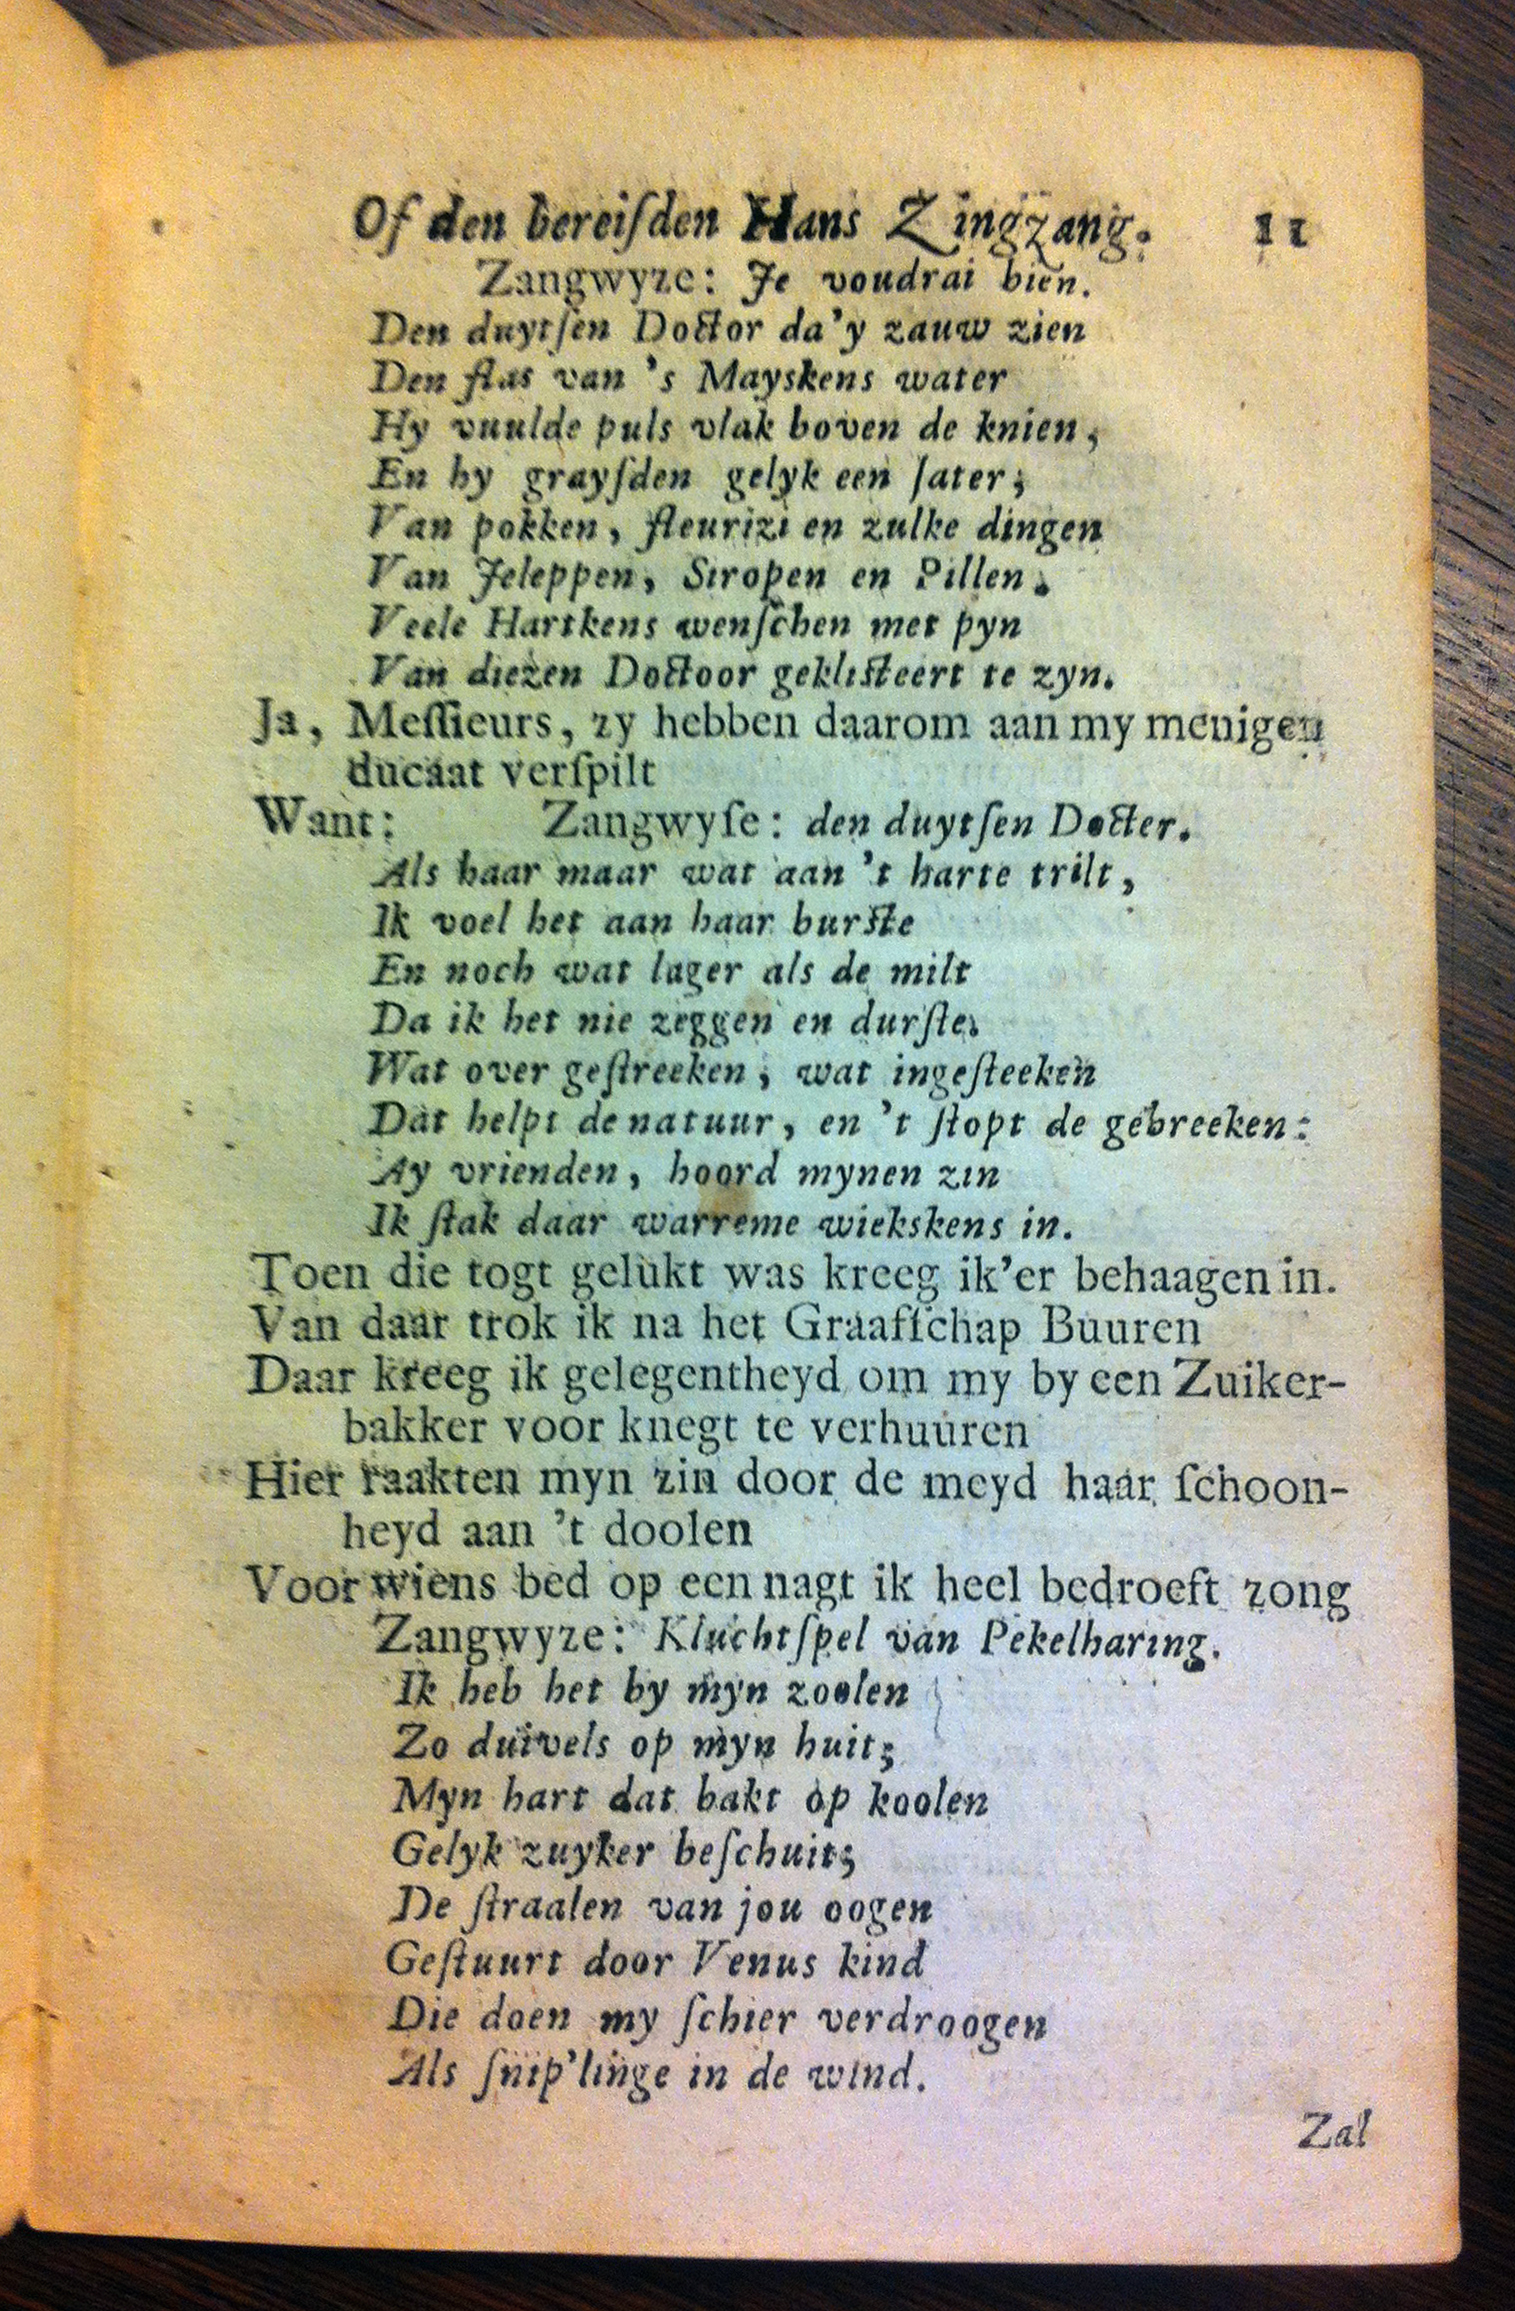 Of den bereiſden Hans Zingzang. 11
Zangwyze: Je voudrai bien.
Den duytſen Doctor da'y zauw zien
Den flas van 's Mayskens water
Hy vuulde puls vlak boven de knien,
En hy grayſden gelyk een ſater;
Van pokken, fleurizi en zulke dingen
Van Jeleppen, Siropen en Pillen.
Veele Hartkens wenſchen met pyn
Van diezen Doctoor geklisteert te zyn.
Ja, Meſſieurs, zy hebben daarom aan my menigen
ducaat verſpilt
Want: Zangwyſe: den duytſen Docter.
Als haar maar wat aan 't harte trilt,
Ik voel het aan haar burste
En noch wat lager als de milt
Da ik het nie zeggen en durſte.
Wat over geſtreeken, wat ingeſteeken
Dat helpt de natuur, en 't ſtopt de gebreeken:
Ay vrienden, hoord mynen zin
Ik ſtak daar warreme wiekskens in.
Toen die togt gelukt was kreeg ik'er behaagen in.
Van daar trok ik na het Graafſchap Buuren
Daar kreeg ik gelegentheyd om my by een Zuiker-
bakker voor knegt te verhuuren
Hier raakten myn zin door de meyd haar ſchoon-
heyd aan 't doolen
Voor wiens bed op een nagt ik heel bedroeft zong
Zangwyze: Kluchtſpel van Pekelharing.
Ik heb het by myn zoolen
Zo duivels op myn huit;
Myn hart dat bakt op koolen
Gelyk zuyker beſchuit;
De ſtraalen van jou oogen
Geſtuurt door Venus kind
Die doen my ſchier verdroogen
Als ſnip'linge in de wind.
Zal